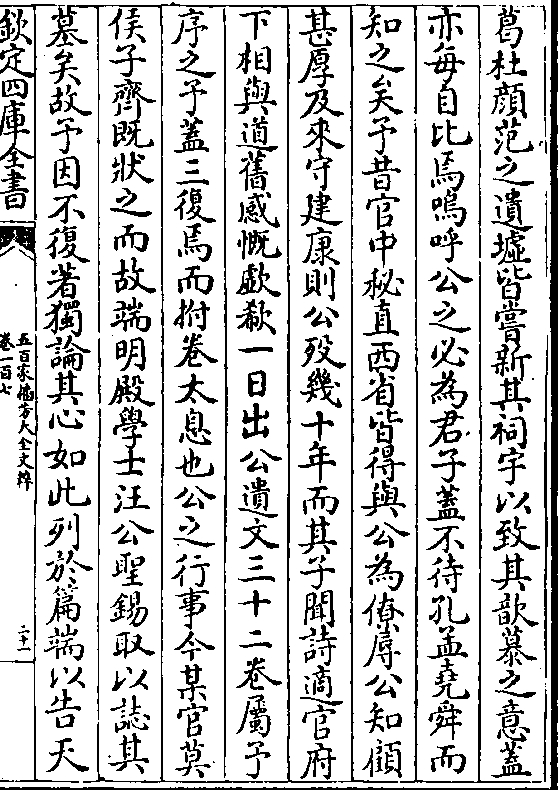 葛杜顔范之遺墟皆嘗新其祠宇以致其歆慕之意蓋
亦每自比焉嗚呼公之必為君子蓋不待孔孟堯舜而
知之矣予昔官中秘直西省皆得與公為僚辱公知顧
甚厚及來守建康則公殁幾十年而其子聞詩適官府
下相與道舊感慨歔欷一日出公遺文三十二卷屬予
序之予蓋三復焉而拊卷太息也公之行事今某官莫
侯子齊既狀之而故端明殿學士汪公聖錫取以誌其
墓矣故予因不復著獨論其心如此列於篇端以告天
欽定四庫全書
五百家播芳大全文粹
卷一百七
二十一